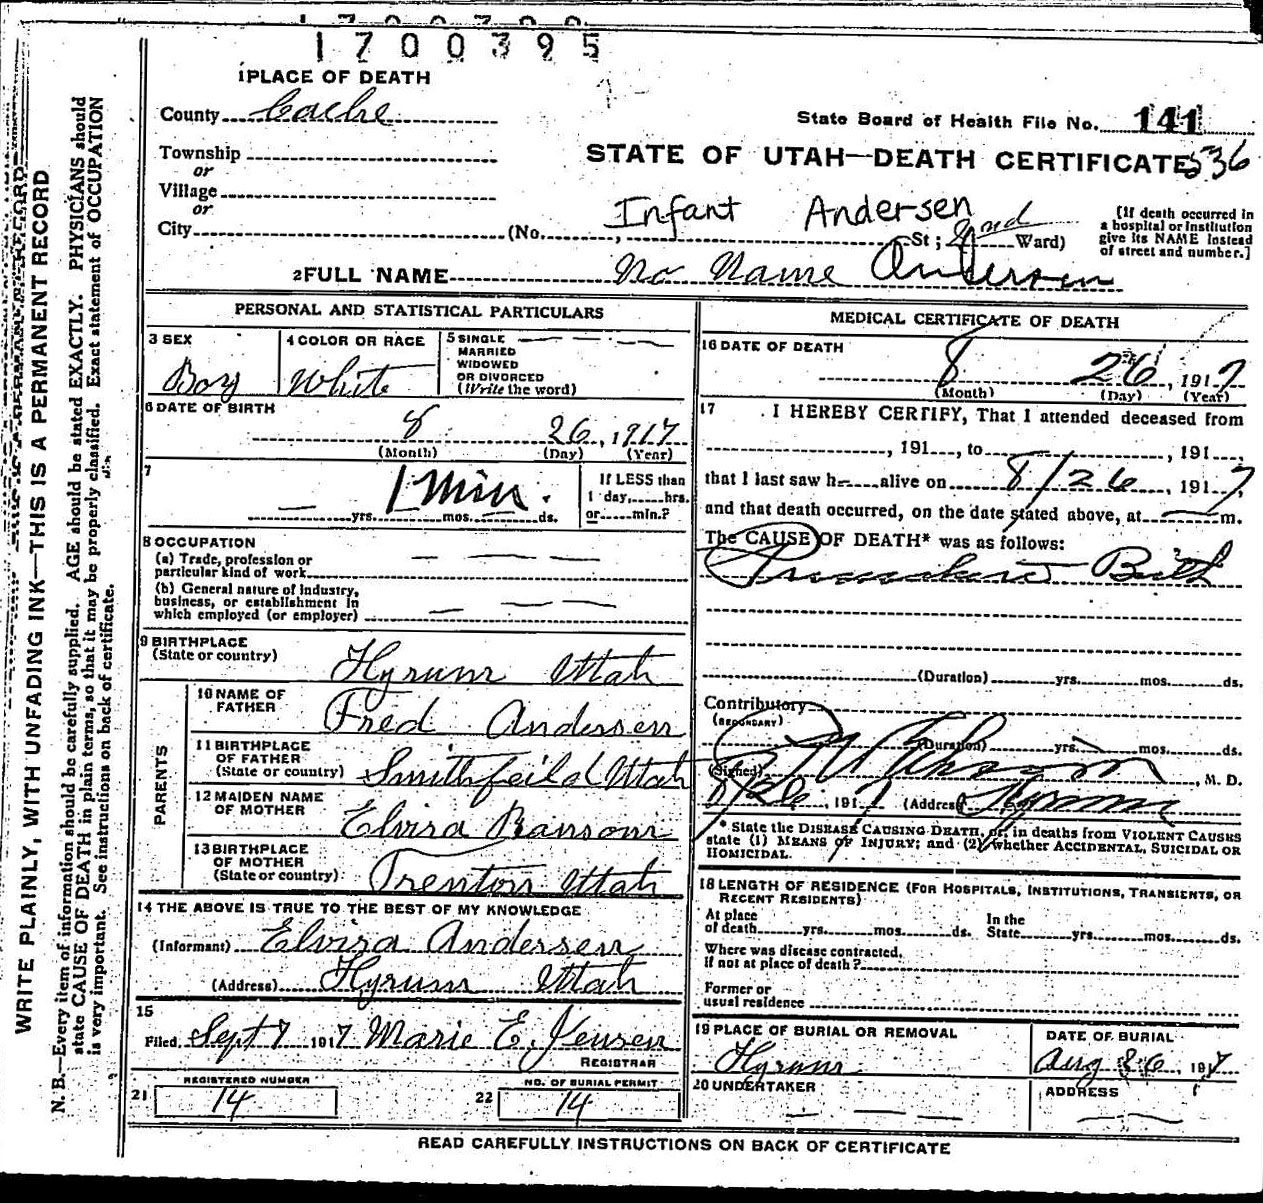 1700395
1 PLACE OF DEATH
County Cache
State Board of Health File No. 141
Township
or
STATE OF UTAH—DEATH CERTIFICATE 536
Village
or
Infant Andersen
City (No. , St; 2nd Ward)
[If death occurred in a hospital or institution give its NAME instead of street and number.]
2 FULL NAME No Name Andersen
PERSONAL AND STATISTICAL PARTICULARS
3 SEX
Boy
4 COLOR OR RACE
White
5 SINGLE
MARRIED
WIDOWED
OR DIVORCED
(Write the word)
6 DATE OF BIRTH
8 26, 1917
(Month) (Day) (Year)
7
1 Min.
yrs. mos. ds.
If LESS than
1 day, hrs.
or min.?
8 OCCUPATION
(a) Trade, profession or
particular kind of work
(b) General nature of industry,
business, or establishment in
which employed (or employer)
9 BIRTHPLACE
(State or country)
Hyrum Utah
PARENTS
10 NAME OF
FATHER
Fred Andersen
11 BIRTHPLACE
OF FATHER
(State or country)
Smithfeild Utah
12 MAIDEN NAME
OF MOTHER
Elvira Ransom
13 BIRTHPLACE
OF MOTHER
(State or country)
Trenton Utah
14 THE ABOVE IS TRUE TO THE BEST OF MY KNOWLEDGE
(Informant) Elvira Andersen
(Address) Hyrum Utah
15
Filed Sept 7 1917 Marie E. Jensen
REGISTRAR
21 REGISTERED NUMBER
14
22 NO. OF BURIAL PERMIT
14
MEDICAL CERTIFICATE OF DEATH
16 DATE OF DEATH
8 26, 1917
(Month) (Day) (Year)
17 I HEREBY CERTIFY, That I attended deceased from
, 191 , to , 191 ,
that I last saw h alive on 8/26, 1917,
and that death occurred, on the date stated above, at m.
The CAUSE OF DEATH* was as follows:
Premature Birth
(Duration) yrs. mos. ds.
Contributory
(SECONDARY)
(Duration) yrs. mos. ds.
(Signed) , M. D.
8/26, 1917 (Address) Hyrum
* State the DISEASE CAUSING DEATH, or, in deaths from VIOLENT CAUSES
state (1) MEANS OF INJURY; and (2) whether ACCIDENTAL, SUICIDAL OR
HOMICIDAL.
18 LENGTH OF RESIDENCE (FOR HOSPITALS, INSTITUTIONS, TRANSIENTS, OR
RECENT RESIDENTS)
At place
of death yrs. mos. ds.
In the
State yrs. mos. ds.
Where was disease contracted,
if not at place of death?
Former or
usual residence
19 PLACE OF BURIAL OR REMOVAL
Hyrum
DATE OF BURIAL
Aug 26, 1917
20 UNDERTAKER
ADDRESS
READ CAREFULLY INSTRUCTIONS ON BACK OF CERTIFICATE
WRITE PLAINLY, WITH UNFADING INK—THIS IS A PERMANENT RECORD
N. B.—Every item of information should be carefully supplied. AGE should be stated EXACTLY. PHYSICIANS should
state CAUSE OF DEATH in plain terms, so that it may be properly classified. Exact statement of OCCUPATION
is very important. See instructions on back of certificate.